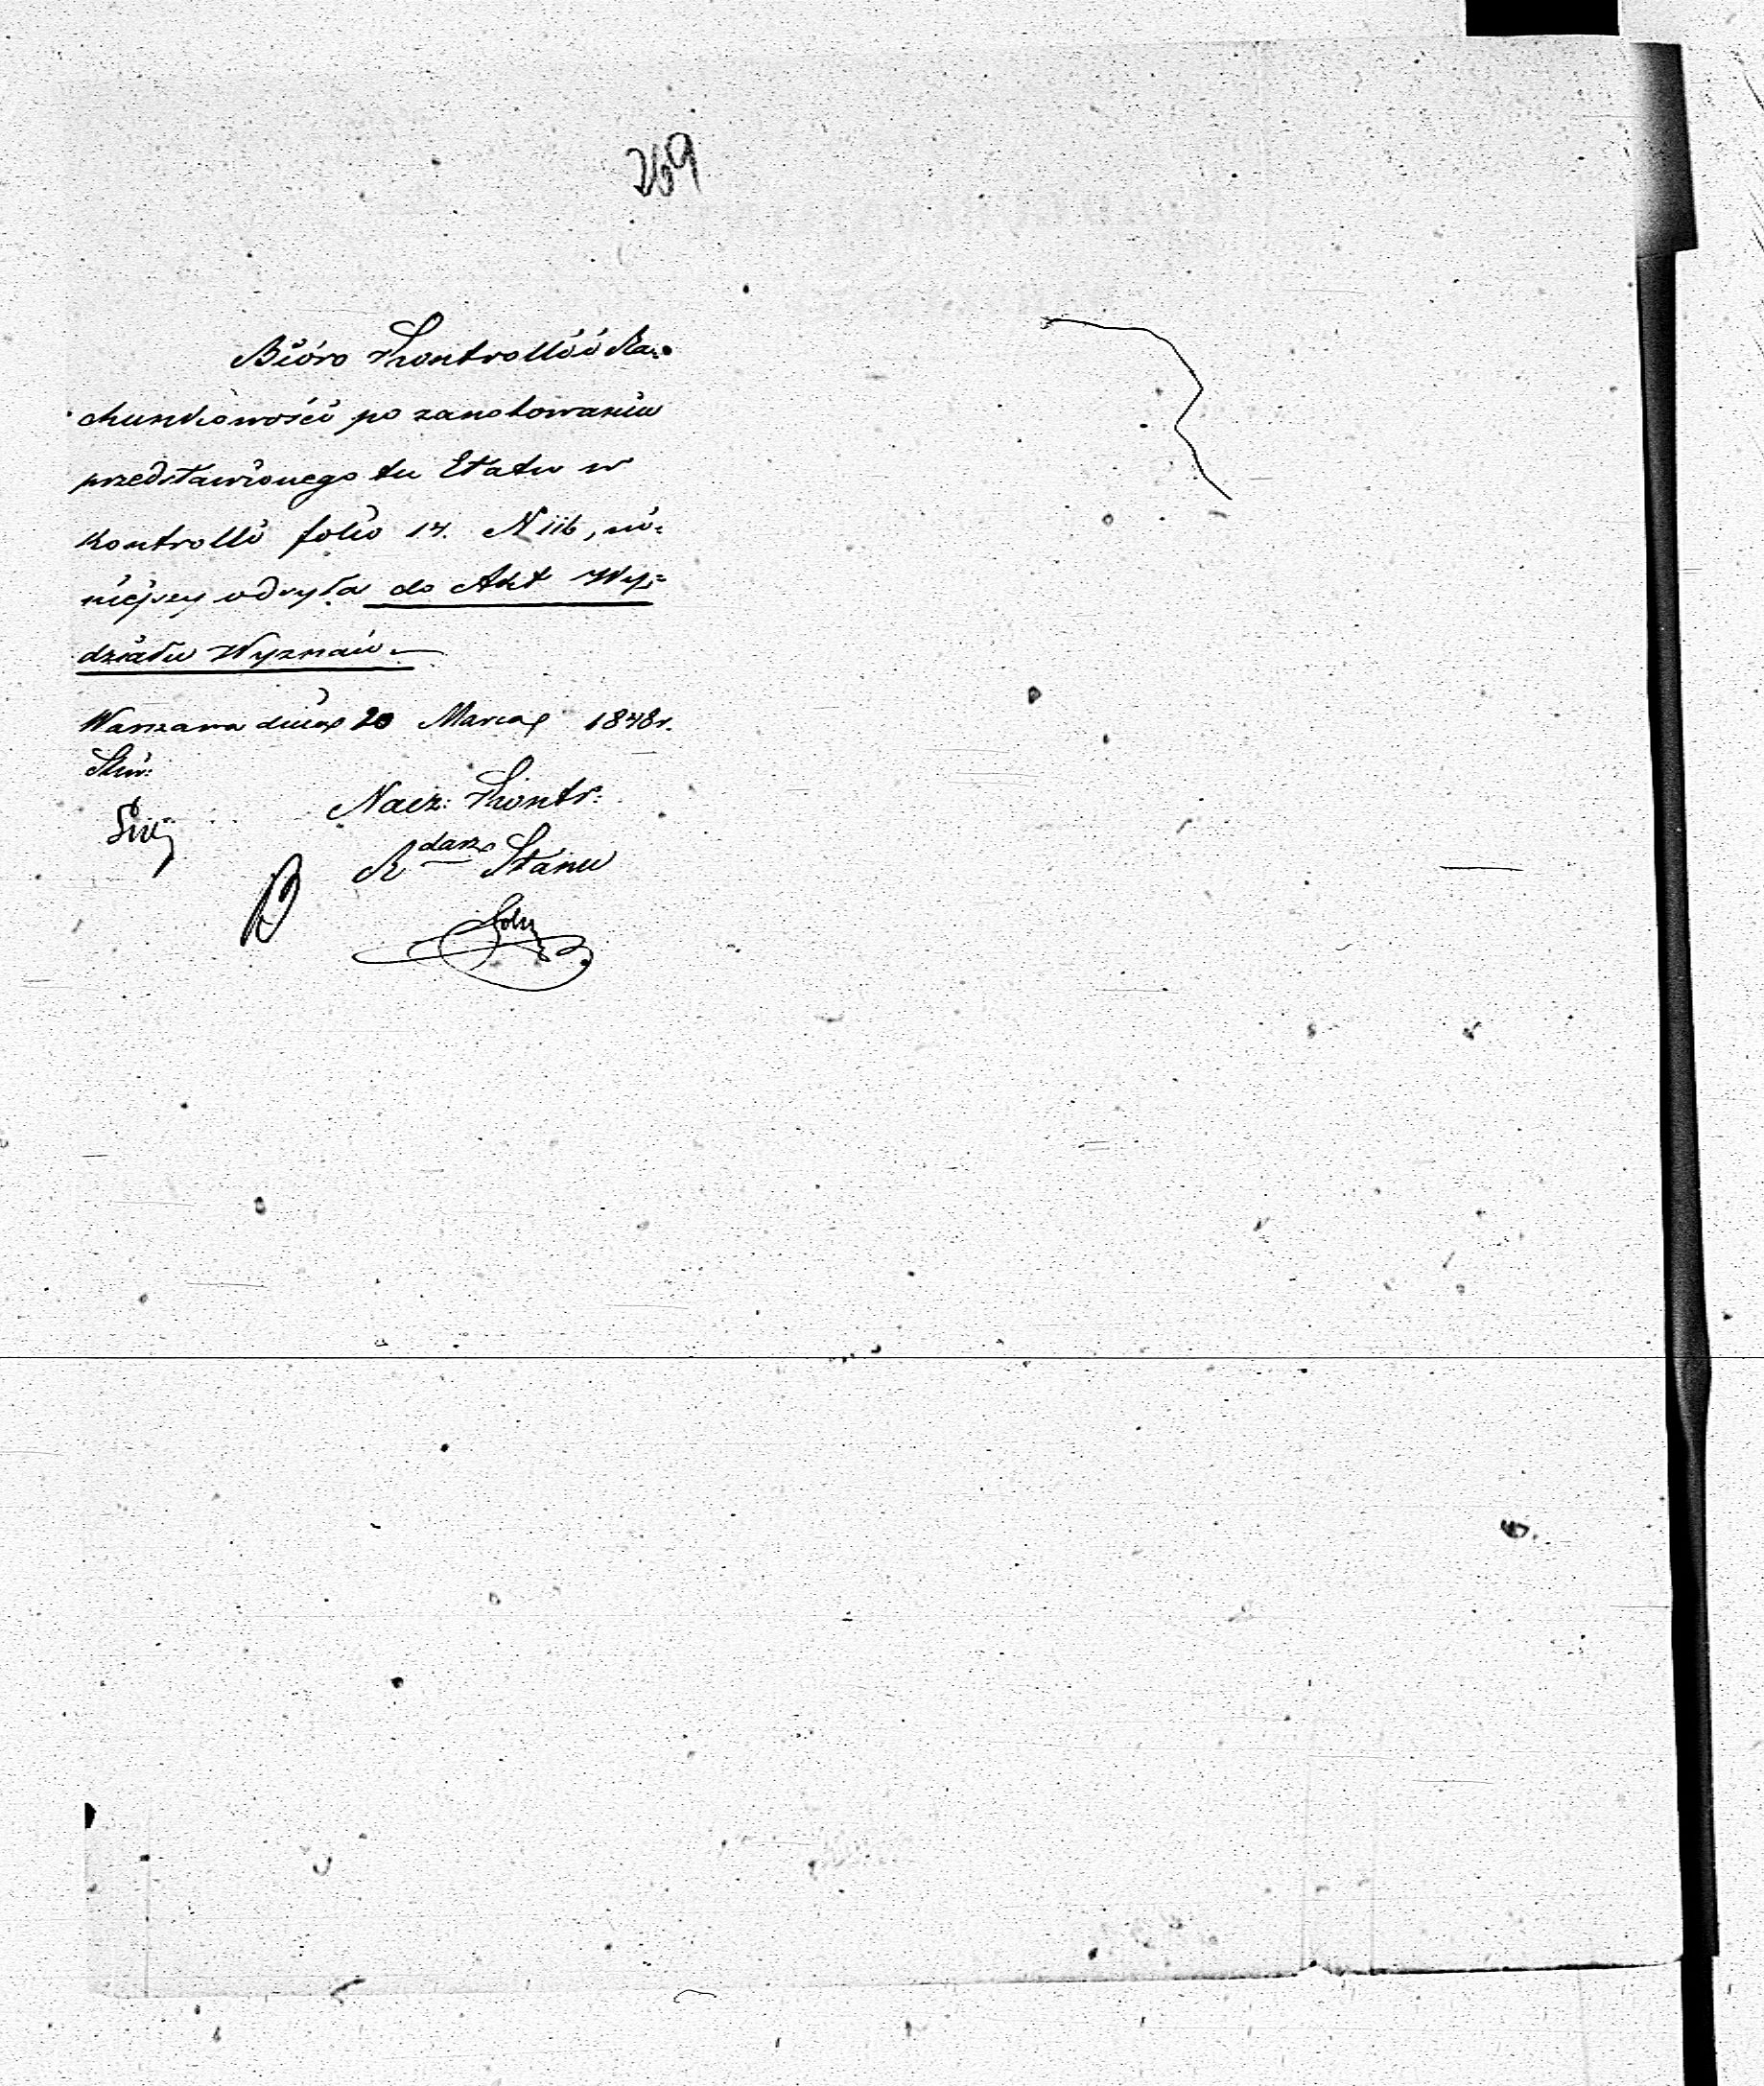 269
Biόro Kontrolli i Ra-
chunkowości po zanotowaniu
przedstawionego tu Etatu w
Kontrolli folio 14. N 116, ni-
niejszy odsyła do Akt Wy-
działu Wyznań.
Warszawa dnia 20 Marca 1848 r.
Nacz: Kontr:
R darz Stanu